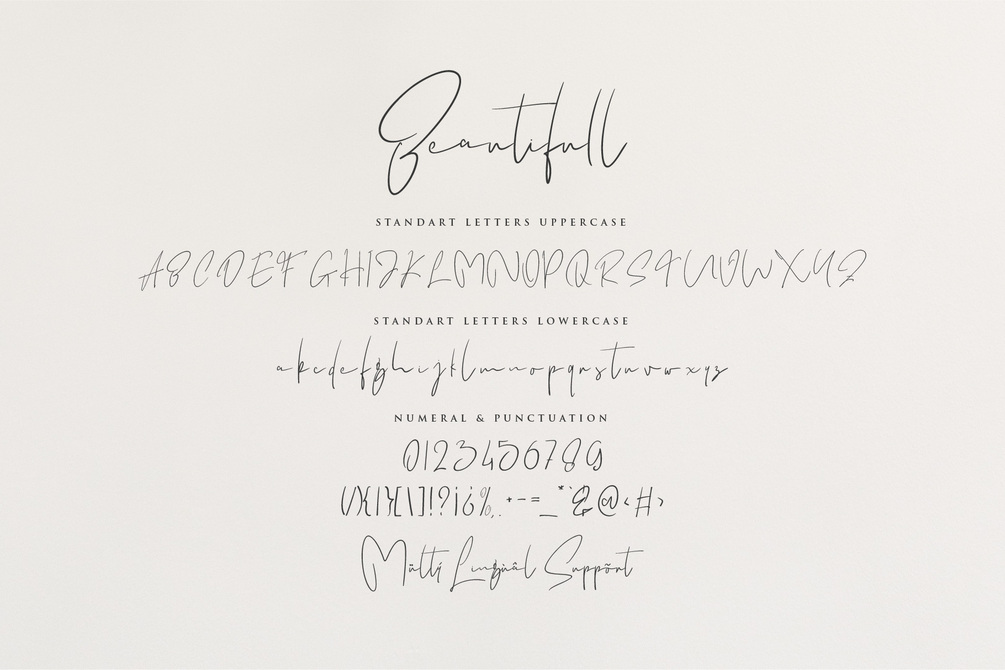 Beautifull
STANDART LETTERS UPPERCASE
ABCDEFGHIJKLMNOPQRSTUVWXYZ
STANDART LETTERS LOWERCASE
abcdefghijklmnopqrstuvwxyz
NUMERAL & PUNCTUATION
0123456789
(/){|}[\]!?¡¿%,.+-=_*`&@‹#›
Múltý Lingüâl Suppõrt